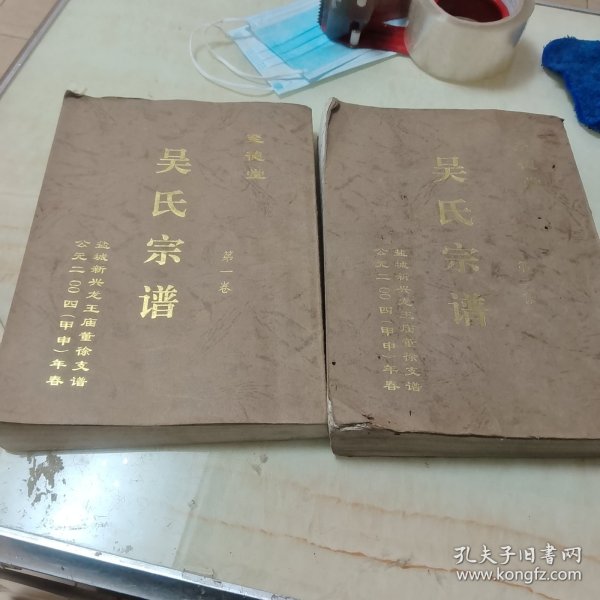 德堂
吴氏宗谱
第一卷
盐城新兴龙王庙董徐支谱
公元二00四(甲申)年春
吴氏宗谱
盐城新兴龙王庙董徐支谱
公元二00四(甲申)年春
孔夫子旧书网
www.kongfz.com